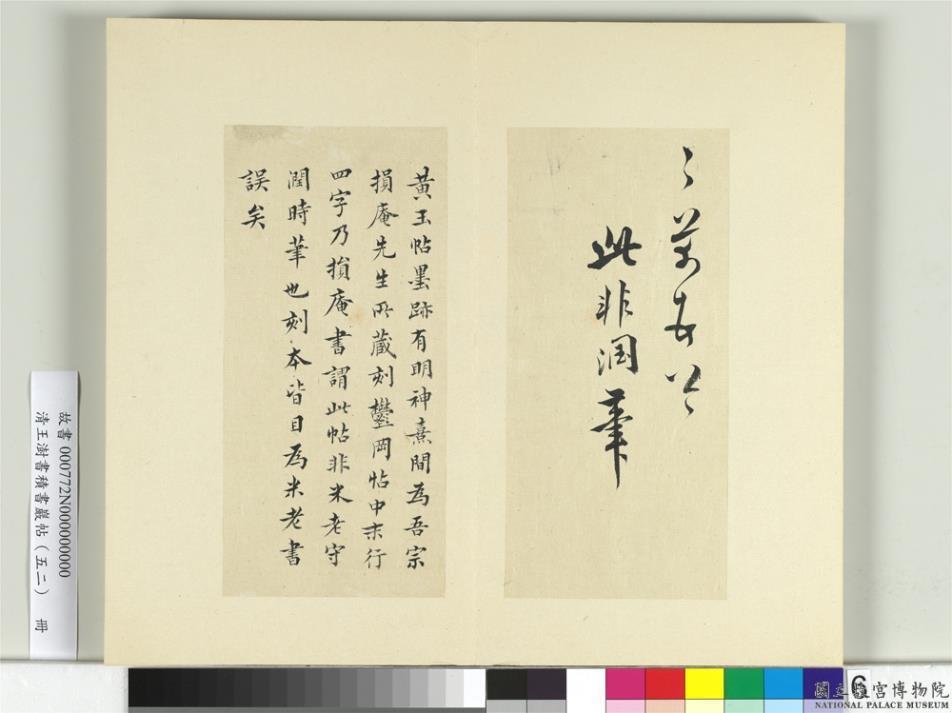 此非潤筆
黃玉帖墨跡有明神熹間為吾宗
損庵先生所藏刻鬱岡帖中末行
四字乃損庵書謂此帖非米老守
潤時筆也刻本皆目為米老書
誤矣
故書 000772N000000000
清王澍書積書巖帖（五二） 冊
6
國立故宮博物院
NATIONAL PALACE MUSEUM